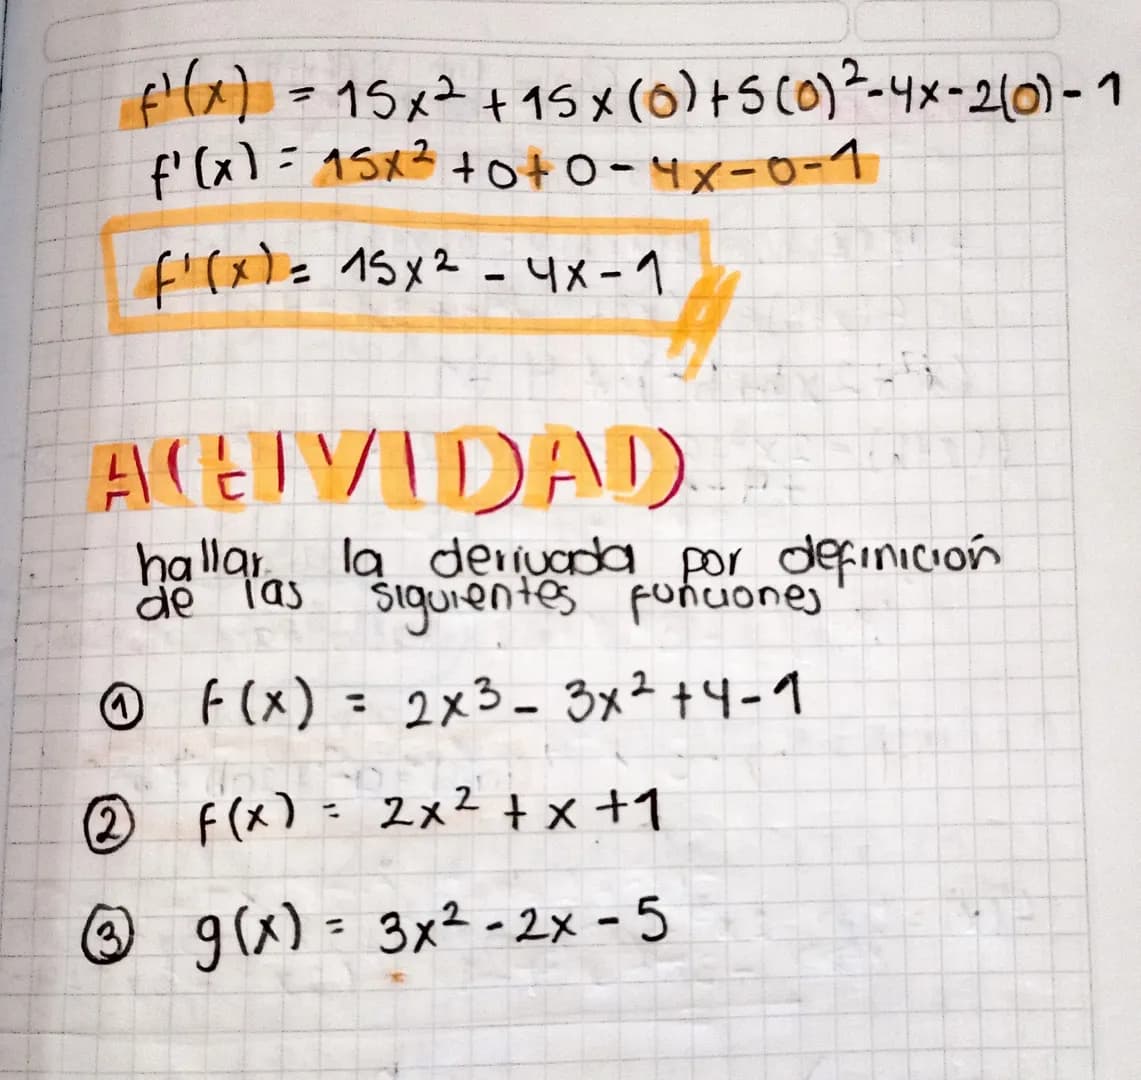 f'(x) = 15x² + 15x(0) + 5(0)² - 4x - 2(0) - 1
f'(x) = 15x² + 0 + 0 - 4x - 0 - 1
f'(x) = 15x² - 4x - 1
ACTIVIDAD
hallar la derivada por definición
de las siguientes funciones
① f(x) = 2x³ - 3x² + 4 - 1
② f(x) = 2x² + x + 1
③ g(x) = 3x² - 2x - 5